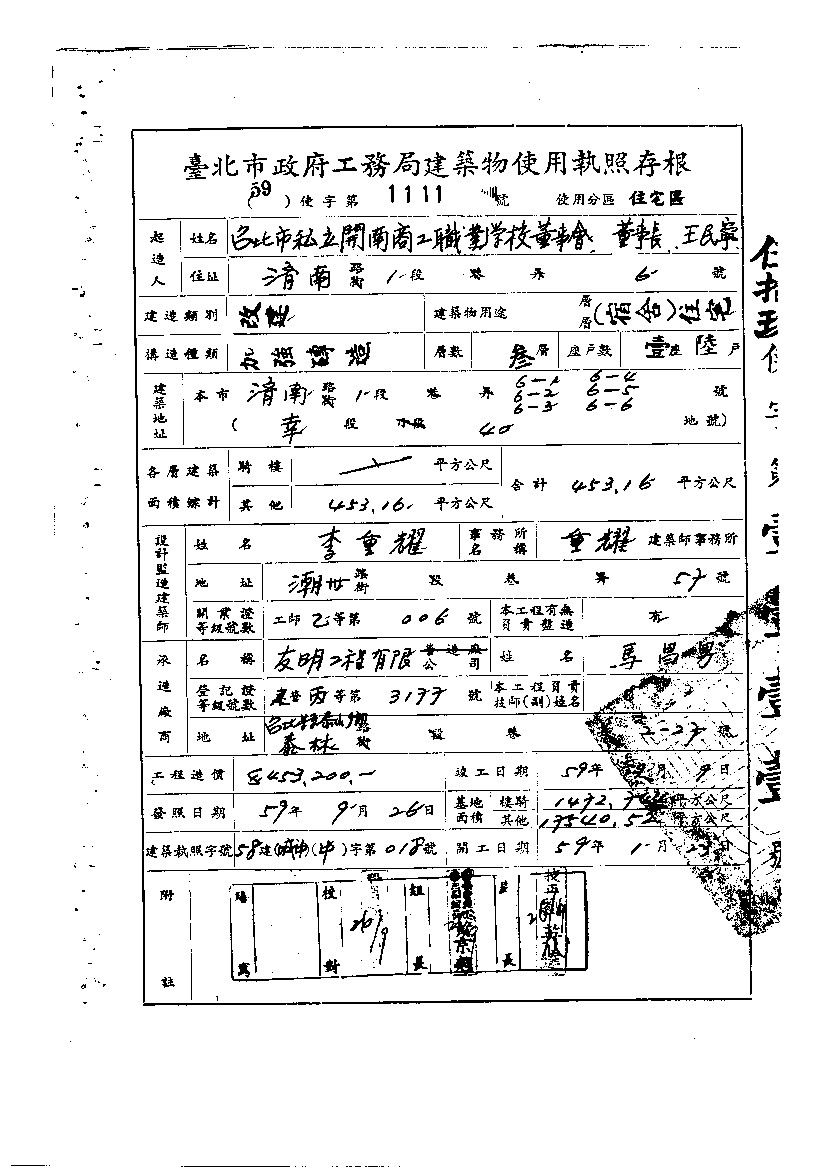 臺北市政府工務局建築物使用執照存根
(59)使字第1111號 使用分區 住宅區
起造人 姓名 台北市私立開南商工職業学校董事會 董事長 王民寧
住址 濟南路街 1段 巷 弄 6 號
建造類別 改建 建築物用途 層層(宿舍)住宅
構造種類 加強磚造 層數 叁層 座戶數 壹座 陸戶
建築地址 本市 濟南路街 1段 巷 弄 6-1 6-2 6-3 6-4 6-5 6-6 號
( 幸 段 小段 40 地號)
各層建築面積總計 騎樓 平方公尺 合計 453.16 平方公尺
其他 453.16 平方公尺
設計監造建築師 姓名 李重耀 事務所名稱 重耀 建築師事務所
地址 潮州路街 段 巷 弄 57 號
開業證等級號數 工師乙等第 006 號 本工程有無負責監造 有
承造廠商 名稱 友明工程有限營造廠公司 姓名 馬昌粵
登記證等級號數 營丙等第 3177 號 本工程負責技師(副)姓名
地址 路街 段 巷 2-27 號
工程造價 453,200.- 竣工日期 59年 月 9日
發照日期 59年 9月 26日 基地面積 騎樓 平方公尺
其他 平方公尺
建築執照字號 58建(城中)(中)字第018號 開工日期 59年 1月 日
附註 校對 26/9 組長